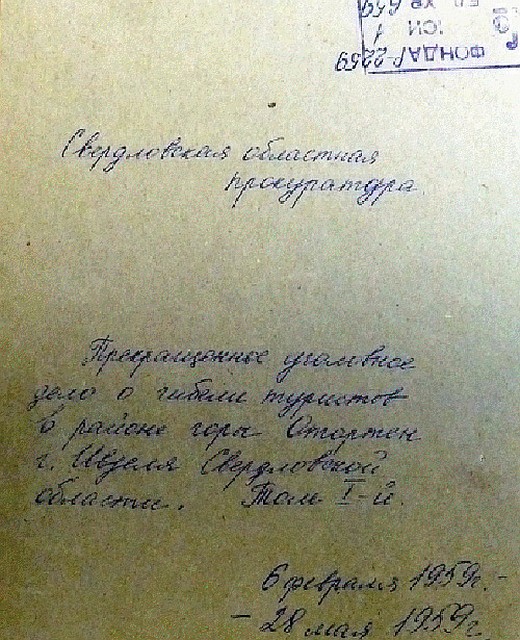 ФОНД Р-2259
ОП. 1
ЕД. ХР. 659
Свердловская областная
прокуратура.
Прекращенное уголовное
дело о гибели туристов
в районе горы Отортен
г. Ивделя Свердловской
области. Том I-й.
6 февраля 1959г. -
- 28 мая 1959г.